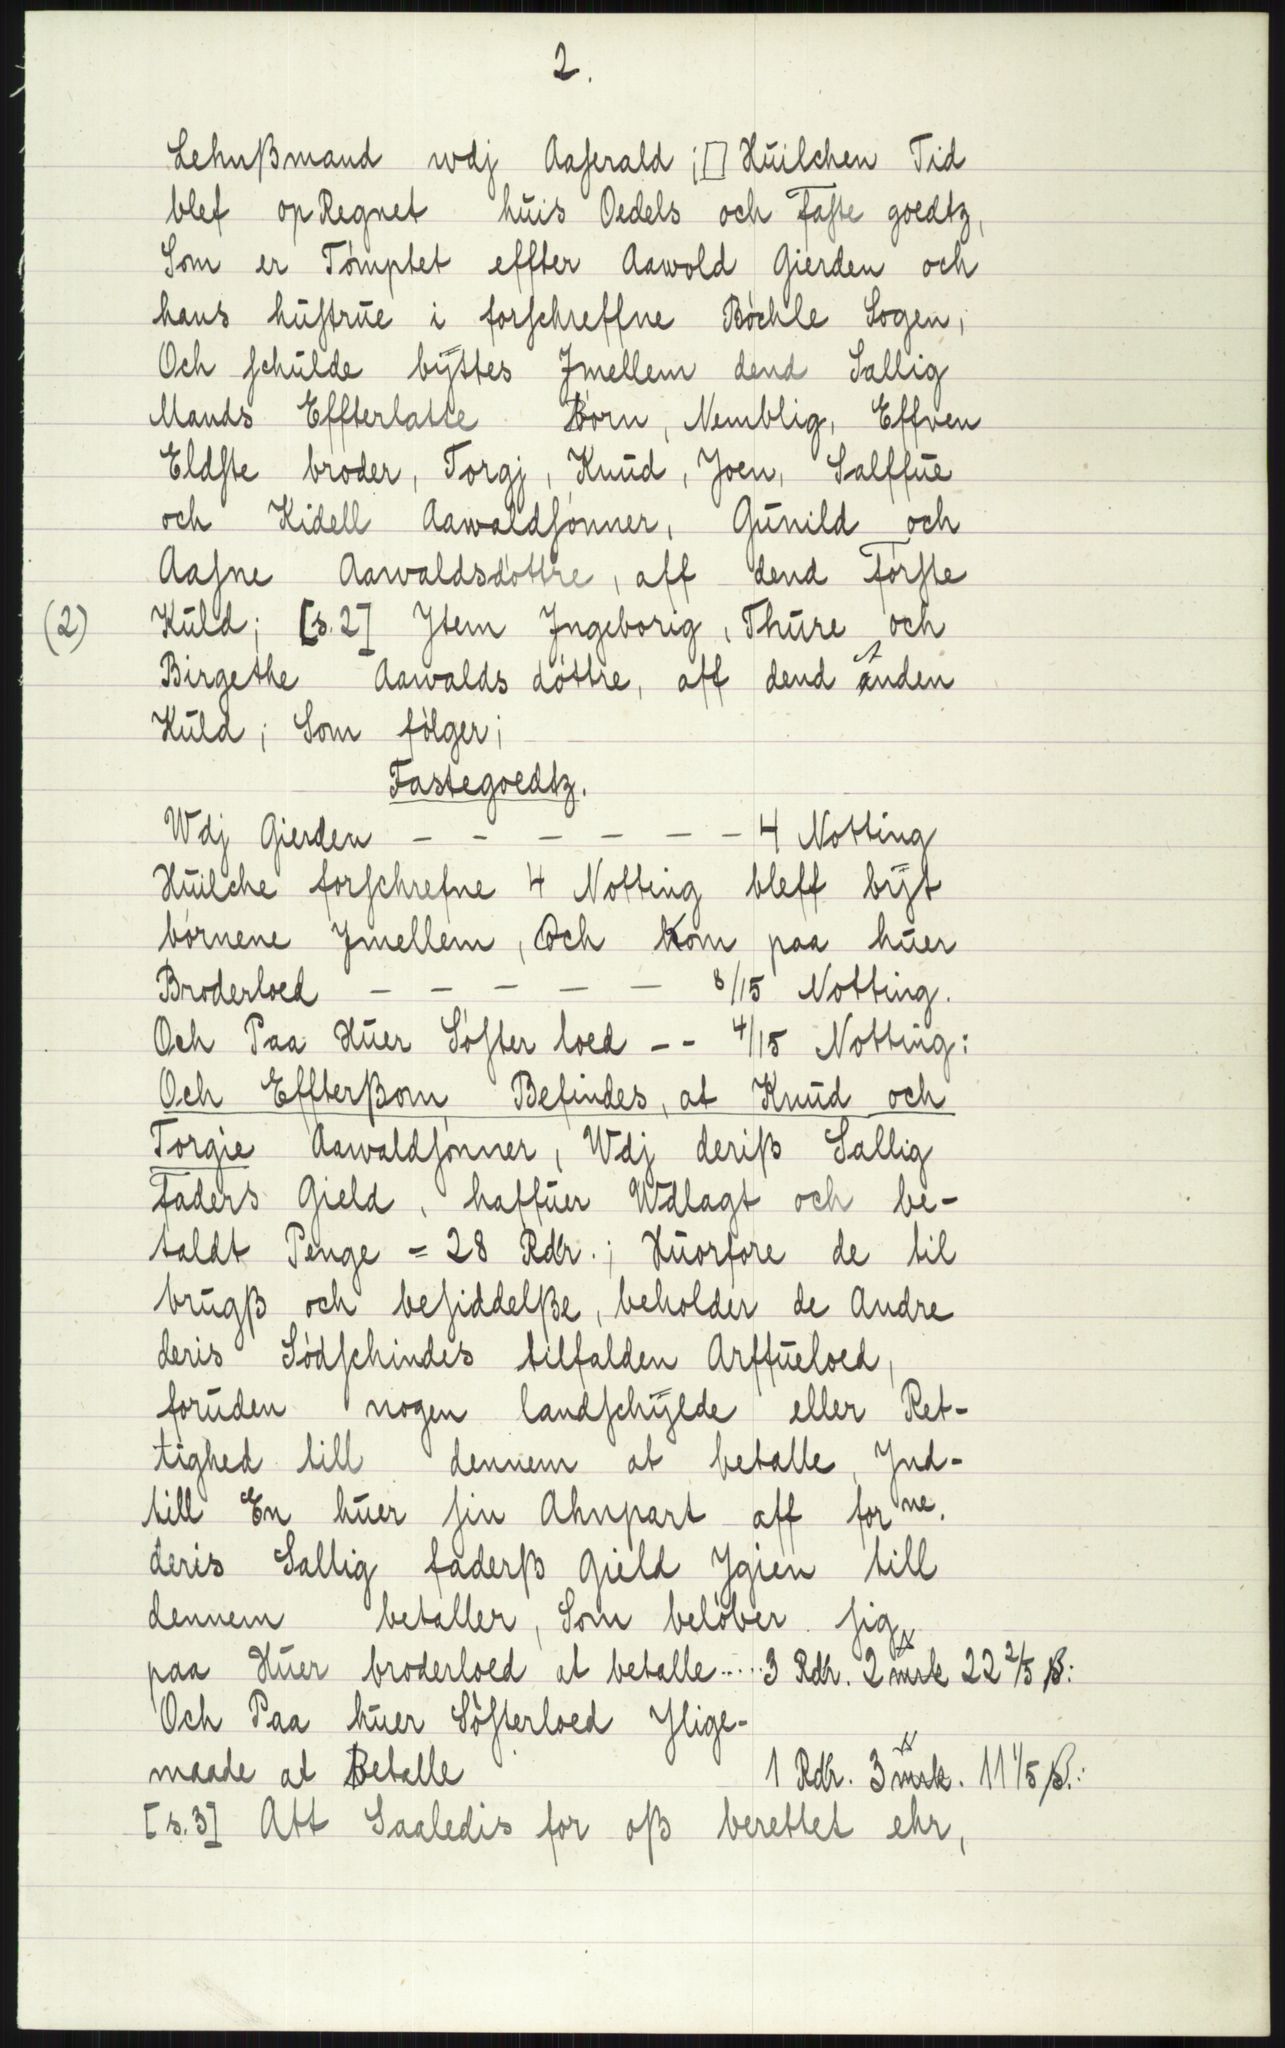 2.
Lehnßmand wdj Aaserald ;[] Huilchen Tid
blef opRegnet huis Oedels och faste goedtz,
Som er Tomptet effter Aawold Gierden och
hans hustrue i forschreffne Böchle Sogen,
Och schulde byttes Jmellem dend Sallig
Mands Effterlatte Börn, Nemblig, Effven
Eldste broder, Torgj, Knud, Joen, Salffue
och Kidell Aawaldsönner, Gunild och
Aasne Aawaldsdöttre, aff dend förste
(2) Kuld; [s.2] Jtem Jngeborig, Thure och
Birgethe Aawalds döttre, aff dend anden
Kuld; Som fölger;
Fastegoedtz.
Wdj Gierden — — — — — — 4 Notting
Huilche forschrefne 4 Notting bleff byt
börnene Jmellem, Och kom paa huer
Broderloed — — — — — 8/15 Notting.
Och Paa Huer Söster loed -- 4/15 Notting:
Och Effterßom Befindes, at Knud och
Torgie Aawaldsönner, Wdj deriß Sallig
faders Gield, haffuer Wdlagt och be-
taldt Penge = 28 Rdr.; Huorfore de til
brugß och besiddelße, beholder de Andre
deris Södschindes tilfalden Arffueloed,
foruden nogen landschylde eller Ret-
tighed till dennem at betalle, Jnd-
till En huer sin Ahnpart aff forne.
deris Sallig faderß Gield Jgien till
dennem betaller, Som belöber sig
paa Huer broderloed at betalle ..... 3 Rdr. 2 mrk 22 2/5 ß:
Och Paa huer Sösterloed Jlige-
maade at Betalle 1 Rdr. 3 mrk. 11 1/5 ß.:
[s.3] Att Saaledis for oß berettet ehr,